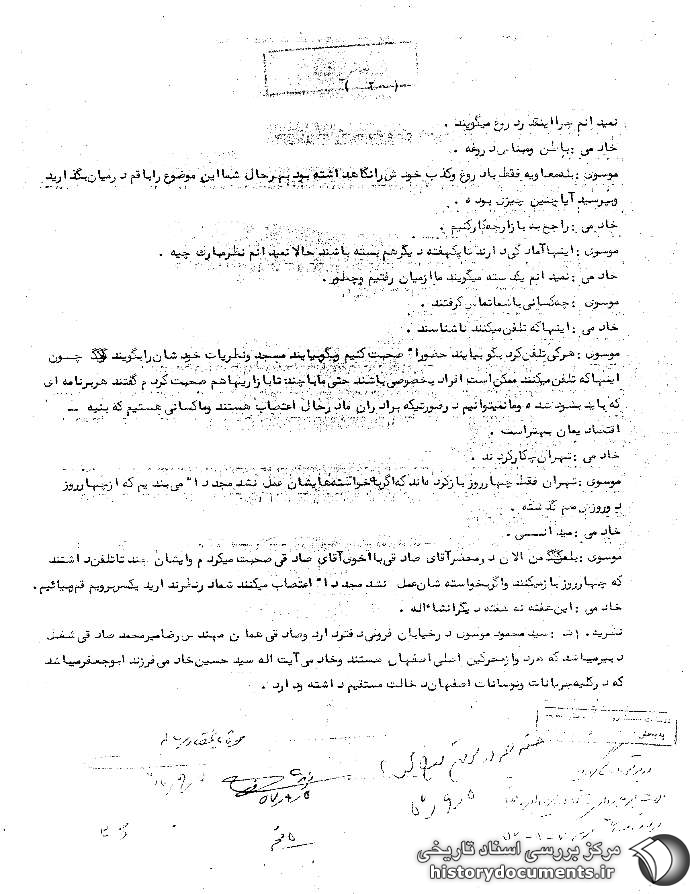 نمیدانم چرا اینقدر دروغ میگویند .
خادمی : باطن ومبنا بر دروغه .
موسوی : بله معاویه فقط باد روغ وکذب خودش رانگاهد اشته بود بهرحال شمااین موضوع راباقم درمیان بگذارید
وبپرسید آیا چنین چیزی بوده .
خادمی : راجع به بازار چه کارکنیم .
موسوی : اینها آمادگی دارند تا یکهفته دیگر هم بسته باشند حالا نمیدانم نظر مبارک چیه .
خادمی : نمیدانم یکدسته میگویند ما ازمیان رفتیم وچطور .
موسوی : چه کسانی باشما تماس گرفتند .
خادمی : اینهاکه تلفن میکنند ناشناسند .
موسوی : هرکی تلفن کرد بگو بیایند حضورا" صحبت کنیم وبگو بیایند مسجد ونظریات خودشان رابگویند چون
اینهاکه تلفن میکنند ممکن است افراد بخصوصی باشند حتی ما با چند تا بازاریها هم صحبت کردم گفتند هربرنامه ای
که باید بشود شده وما نمیتوانیم درصورتیکه برادران ما درحال اعتصاب هستند وما کسانی هستیم که بنیه
اقتصادیمان بهتراست .
خادمی : تهران چکارکردند .
موسوی : تهران فقط چهارروز بازکرده اند که اگر به خواسته هایشان عمل نشد مجددا" می بندیم که ازچهارروز
دوروزش هم گذشته .
خادمی : میدانستی .
موسوی : بله من الان درمحضرآقای صادقی با اخوی آقای صادقی صحبت میکردم وایشان چند تا تلفن داشتند
که چهارروز بازمیکنند واگر بخواسته شان عمل نشد مجددا" اعتصاب میکنند شما درنظر دارید یکسر برویم قم بیائیم .
خادمی : این هفته نه هفته دیگر انشاءاله .
نظریه : سید محمود موسوی درخیابان فروغی دفتر دارد وصادقی همان مهندس رضامیرمحمد صادقی شغل
دبیر میباشد که هردو ازمحرکین اصلی اصفهان هستند وخادمی آیت اله سید حسین خادمی فرزند ابوجعفر میباشد
که درکلیه جریانات ونوسانات اصفهان دخالت مستقیم داشته ودارد .
مرکز بررسی اسناد تاریخی
historydocuments.ir